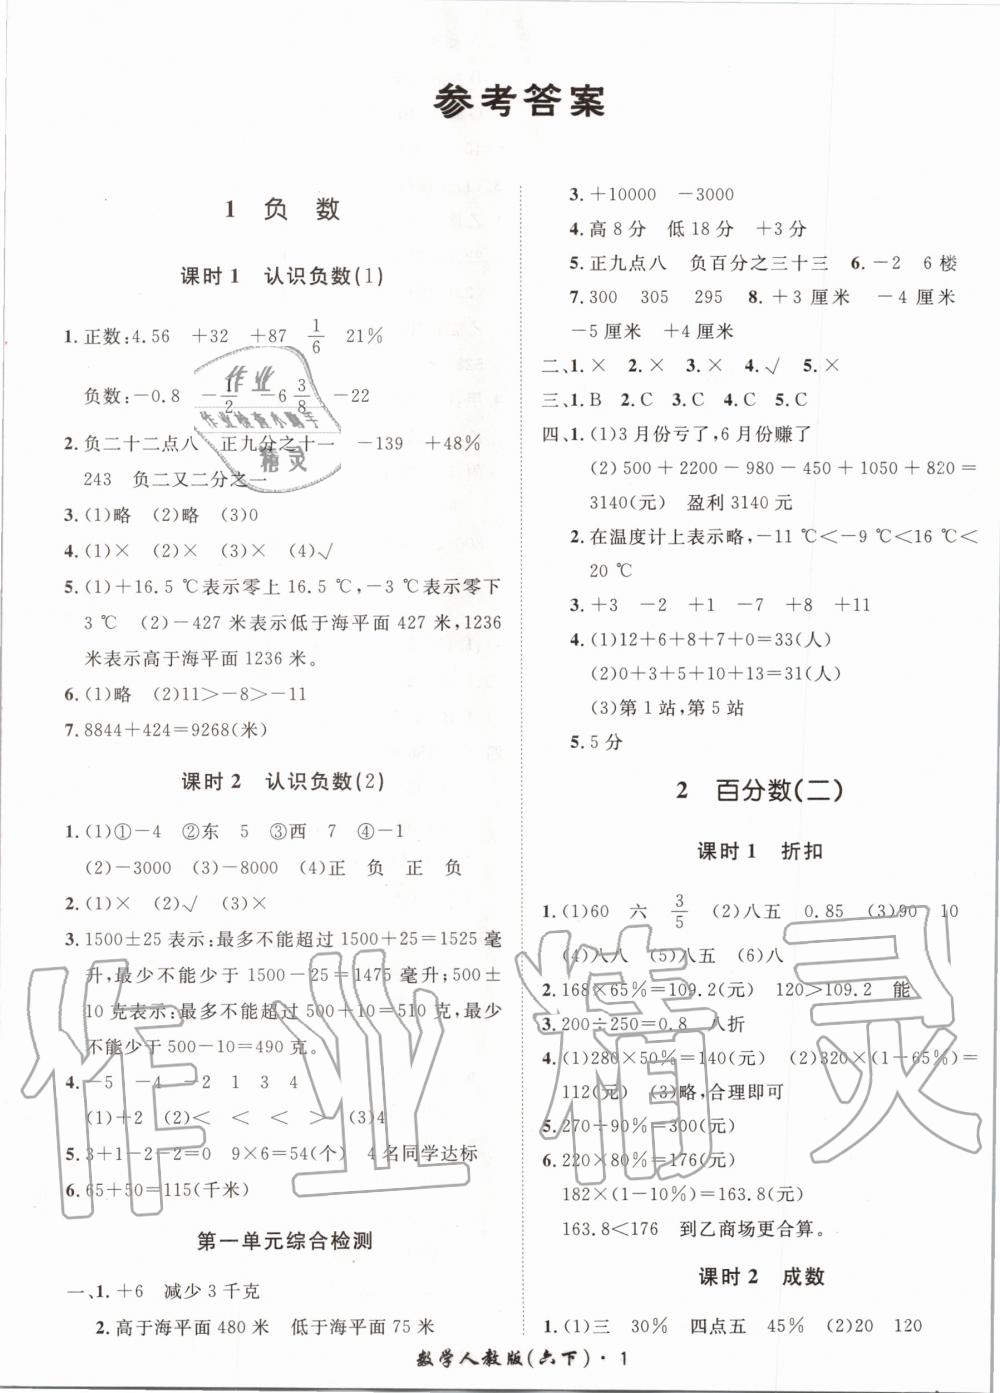 参考答案
1 负数
课时1 认识负数(1)
1.正数:4.56 +32 +87 1/6 21%
负数:-0.8 -1/2 -6 3/8 -22
2.负二十二点八 正九分之十一 -139 +48%
243 负二又二分之一
3.(1)略 (2)略 (3)0
4.(1)× (2)× (3)× (4)√
5.(1)+16.5 ℃表示零上16.5 ℃,-3 ℃表示零下
3 ℃ (2)-427米表示低于海平面427米,1236
米表示高于海平面1236米。
6.(1)略 (2)11>-8>-11
7.8844+424=9268(米)
课时2 认识负数(2)
1.(1)①-4 ②东 5 ③西 7 ④-1
(2)-3000 (3)-8000 (4)正 负 正 负
2.(1)× (2)√ (3)×
3.1500±25表示:最多不能超过1500+25=1525毫
升,最少不能少于1500-25=1475毫升;500±
10克表示:最多不能超过500+10=510克,最少
不能少于500-10=490克。
4.-5 -4 -2 1 3 4
(1)+2 (2)< < < > (3)4
5.3+1-2-2=0 9×6=54(个) 4名同学达标
6.65+50=115(千米)
第一单元综合检测
一、1.+6 减少3千克
2.高于海平面480米 低于海平面75米
3.+10000 -3000
4.高8分 低18分 +3分
5.正九点八 负百分之三十三 6.-2 6楼
7.300 305 295 8.+3厘米 -4厘米
-5厘米 +4厘米
二、1.× 2.× 3.× 4.√ 5.×
三、1.B 2.C 3.C 4.C 5.C
四、1.(1)3月份亏了,6月份赚了
(2)500+2200-980-450+1050+820=
3140(元) 盈利3140元
2.在温度计上表示略,-11 ℃<-9 ℃<16 ℃<
20 ℃
3.+3 -2 +1 -7 +8 +11
4.(1)12+6+8+7+0=33(人)
(2)0+3+5+10+13=31(人)
(3)第1站,第5站
5.5分
2 百分数(二)
课时1 折扣
1.(1)60 六 3/5 (2)八五 0.85 (3)90 10
(4)八八 (5)八五 (6)八
2.168×65%=109.2(元) 120>109.2 能
3.200÷250=0.8 八折
4.(1)280×50%=140(元) (2)320×(1-65%)=
112(元) (3)略,合理即可
5.270÷90%=300(元)
6.220×80%=176(元)
182×(1-10%)=163.8(元)
163.8<176 到乙商场更合算。
课时2 成数
1.(1)三 30% 四点五 45% (2)20 120
数学人教版(六下)·1
作业
作业检查小助手
精灵
作业精灵